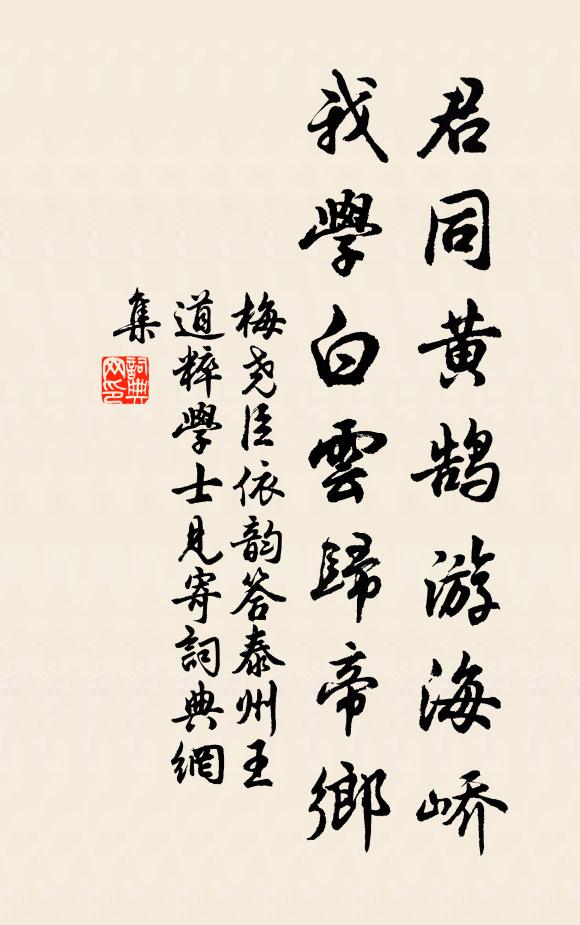 君同黄鹄游海峤
我學白雲歸帝鄉
梅尭臣依韵答泰州王
道粹學士見寄詞典網
集
詞典
网印